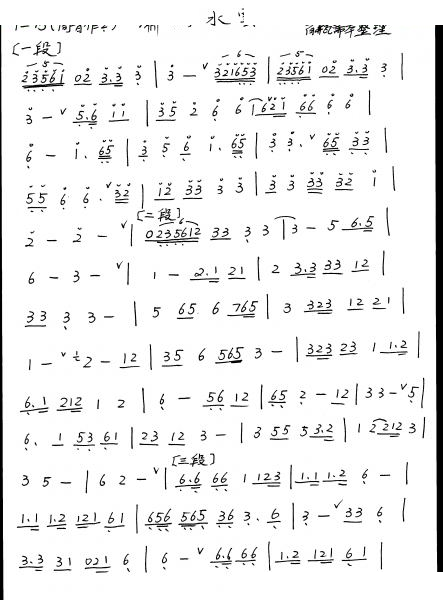 水
[一段]
23561 02 3.3 3 | 3 – ᵛ 321653 | 23561 02 3.3 3 |
3 – ᵛ 5.6 11 | 35 2 6 6 1621 66 6 6 |
6 – 1. 65 | 3 5 6 1. 65 | 3 3. ᵛ 65 33 |
55 6 6. ᵛ 32 | 12 33 3 3 | 3 3 33 32 1 |
[二段]
2 – 2 – ᵛ | 0235612 33 3 3 | 3 – 5 6.5 |
6 – 3 – ᵛ | 1 – 2.1 21 | 2 3.3 33 12 |
33 3 3 – | 5 65 6 765 | 3 323 12 21 |
1 – ᵛ 2 – 12 | 35 6 565 3 – | 323 23 1 1.2 |
6.1 212 1 2 | 6 – 56 12 | 65 2 – 12 | 33 – ᵛ 5 |
6. 1 53 61 | 23 12 3 – | 3 55 5 3.2 | 1 2 212 3 |
[三段]
3 5 – | 6 2 – ᵛ | 6.6 66 1 123 | 1.1 1.2 6 – |
1.1 1.2 121 61 | 656 565 36 3. 6 | 3 – ᵛ 33 6 |
3.3 31 021 6 | 6 – ᵛ 6.6 66 | 1.2 121 61 |